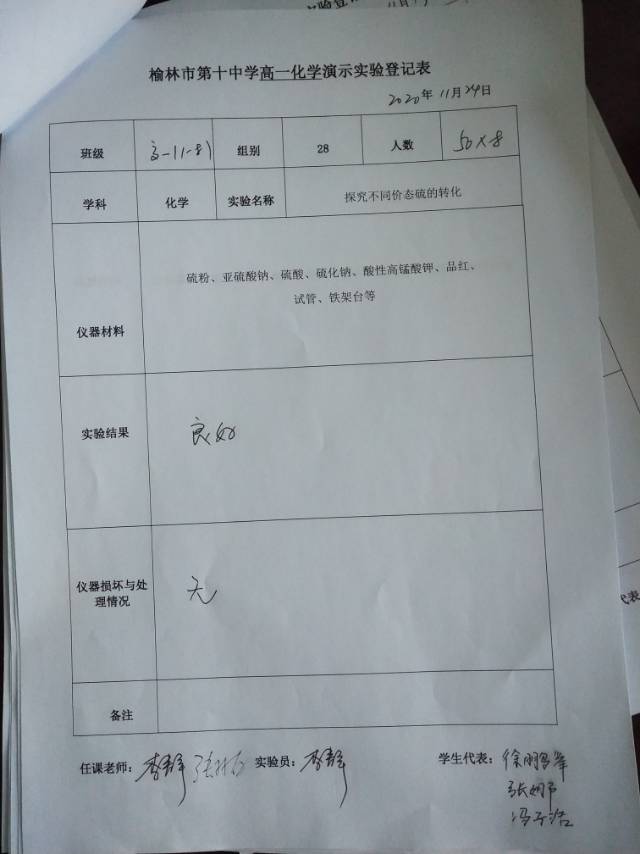 榆林市第十中学高一化学演示实验登记表
2020年11月24日
班级 组别 28 人数 50×8
学科 化学 实验名称 探究不同价态硫的转化
硫粉、亚硫酸钠、硫酸、硫化钠、酸性高锰酸钾、品红、
试管、铁架台等
仪器材料
实验结果 良好
仪器损坏与处
理情况
无
备注
任课老师：李静 实验员：李静 学生代表：